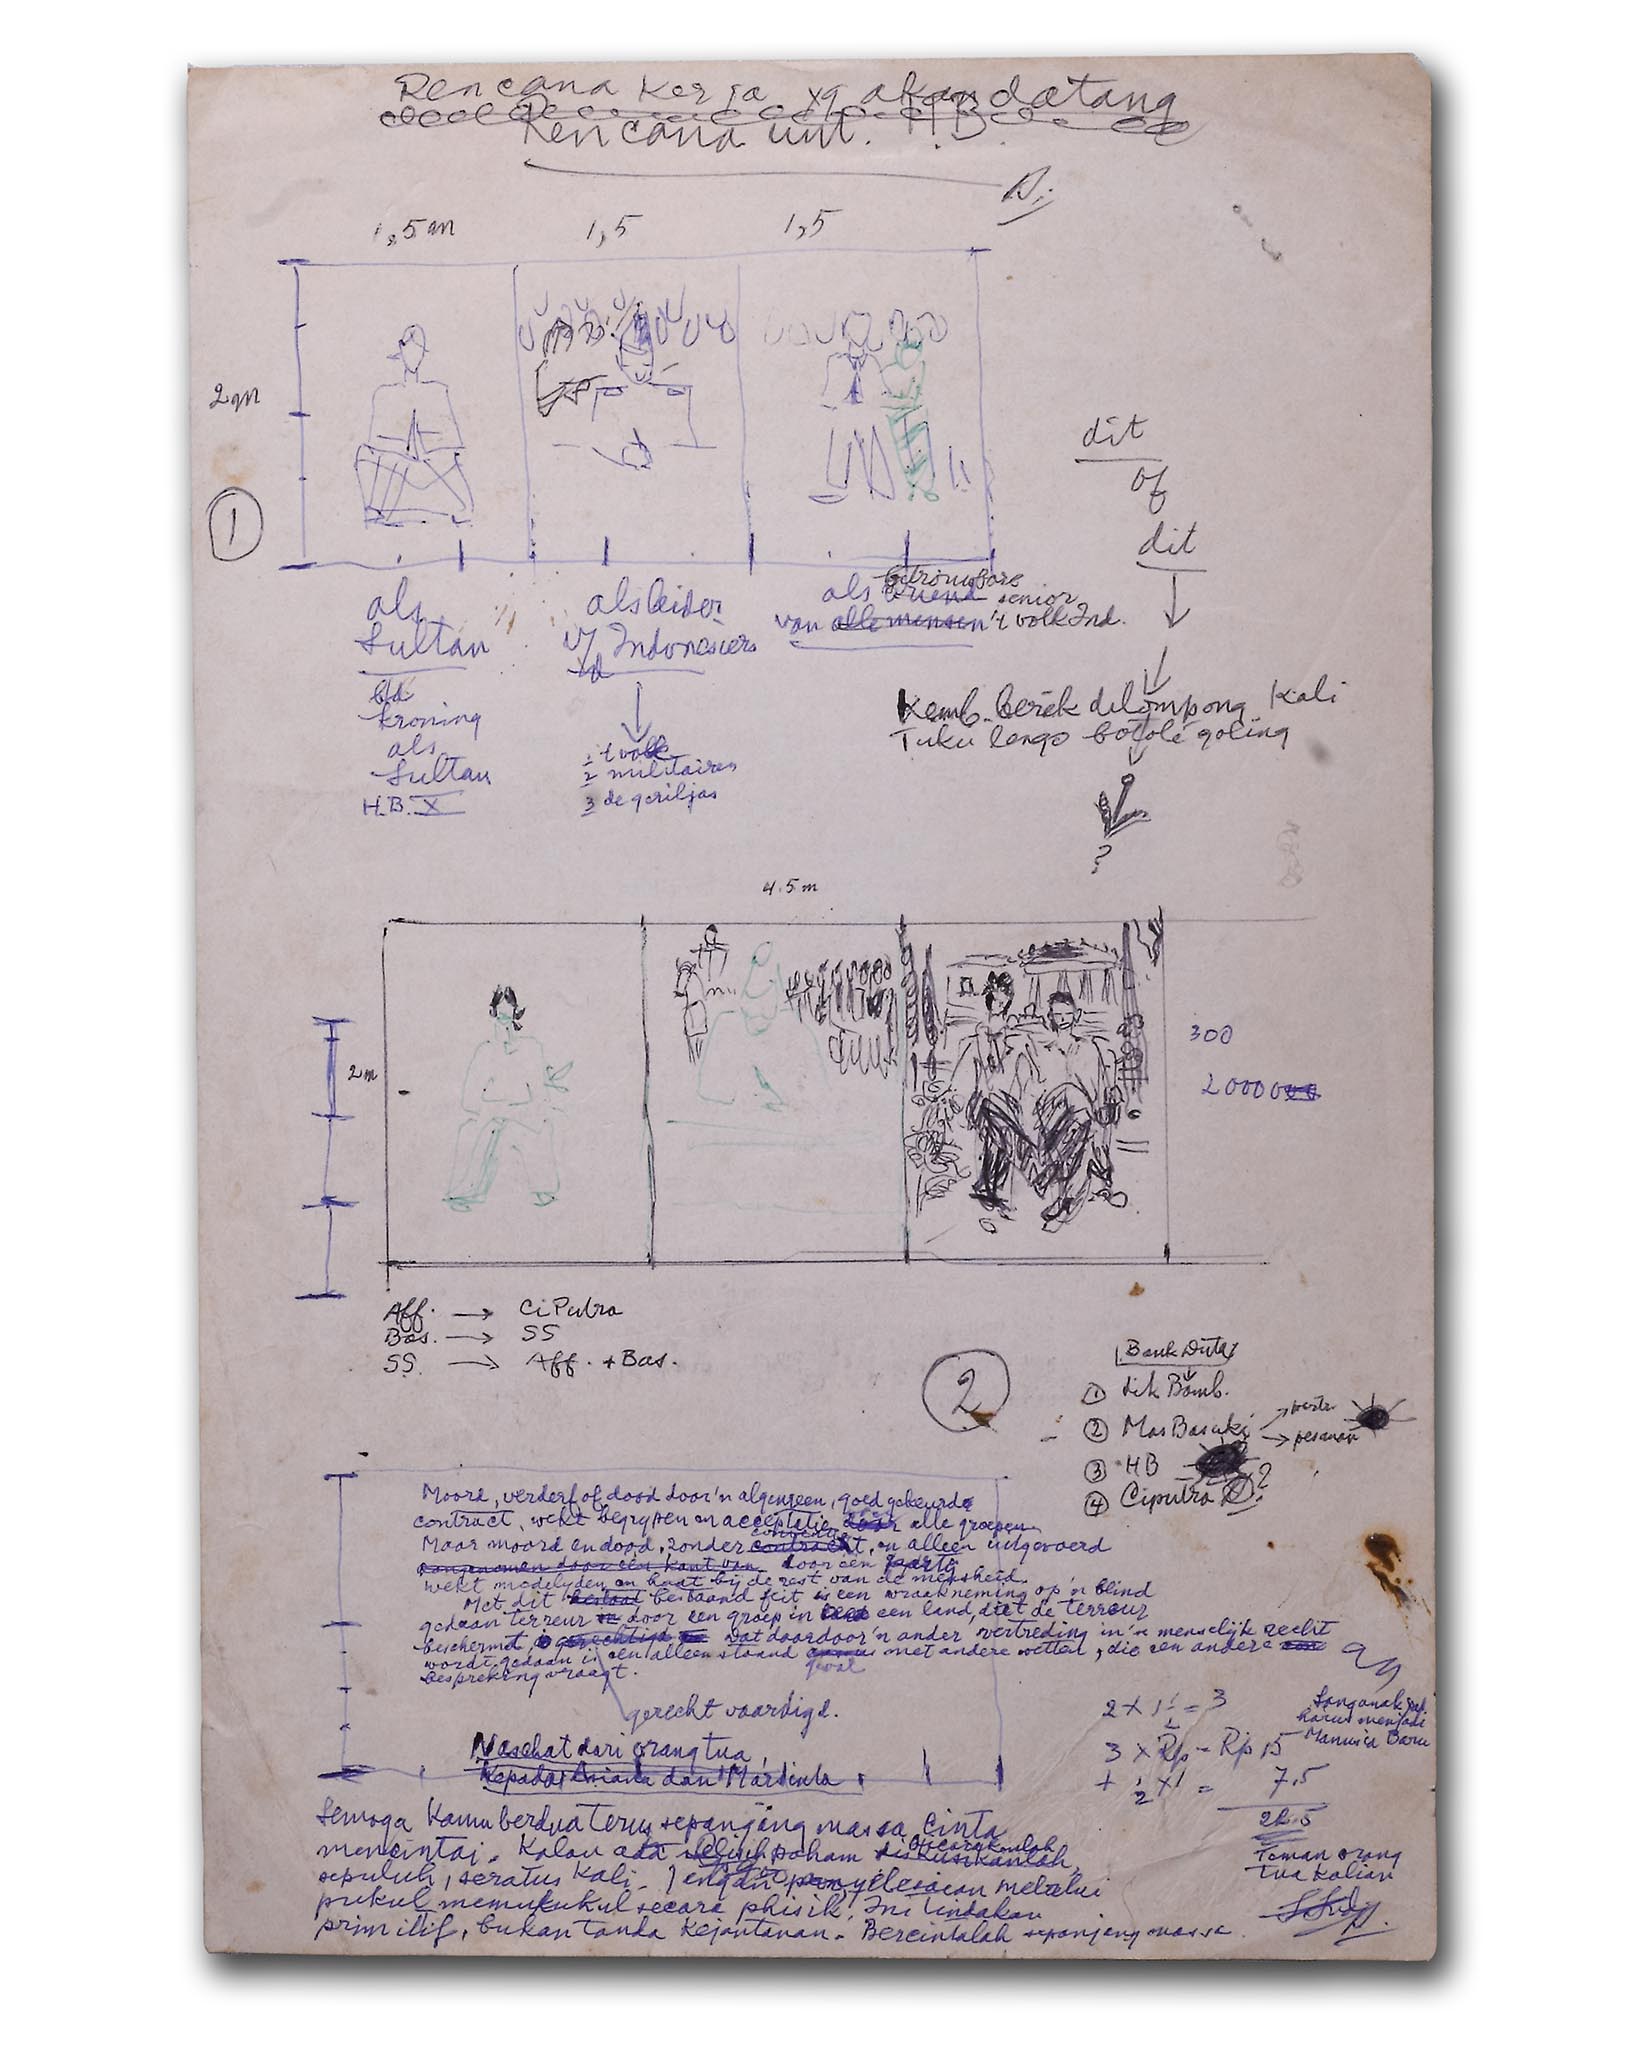 Rencana Kerja yg akan datang
Rencana unt. H.B.
1,5 m
1,5
1,5
2 m
1
dit
of
dit
als
Sultan
bld
kroning
als
Sultan
H.B. X
als leider
v/d Indonesiers
1 't volk
2 militairen
3 de geriljas
als betrouwbare
vriend senior
van alle mensen 't volk Ind.
Kemb. berek delompong Kali
Tuku lengo botolé goling
?
4.5 m
2 m
300
20000
Aff. → CiPutra
Bas. → SS
SS. → Aff. + Bas.
2
Bank Duta
1 dik Bomb.
2 Mas Basuki → pesanan
3 HB
4 Ciputra ?
Moord, verderf of dood door 'n algemeen, goed gekeurde
contract, wekt begrypen en acceptatie door alle groepen
Maar moord en dood, zonder contract, en alleen uitgevoerd
aangenomen door één kant van door een partij
wekt medelyden en haat bij de rest van de mensheid.
Met dit bestaand feit is een wraakneming op 'n blind
gedaan terreur door een groep in een land, diet de terreur
beschermt, gerechtigd Dat daardoor 'n ander vertreding in 'n menselijk recht
wordt gedaan is een alleen staand geval met andere wetten, die een andere
bespreking vraagt.
gerecht vaardigd.
Nasehat dari orang tua,
Kepada: dan
Semoga Kamu berdua terus sepanjang massa cinta
mencintai. Kalau ada selisih paham bicarakanlah diskusikanlah,
sepuluh, seratus kali. Jangan penyelesaian melalui
pukul memukukul secara phisik. Ini tindakan
primitif, bukan tanda Kejantanan. Bercintalah sepanjang massa
2 x 1½ = 3
3 x Rp = Rp 15
+ ½ x 1 = 7,5
22.5
harus menjadi
Manusia Baru
Teman orang
tua kalian